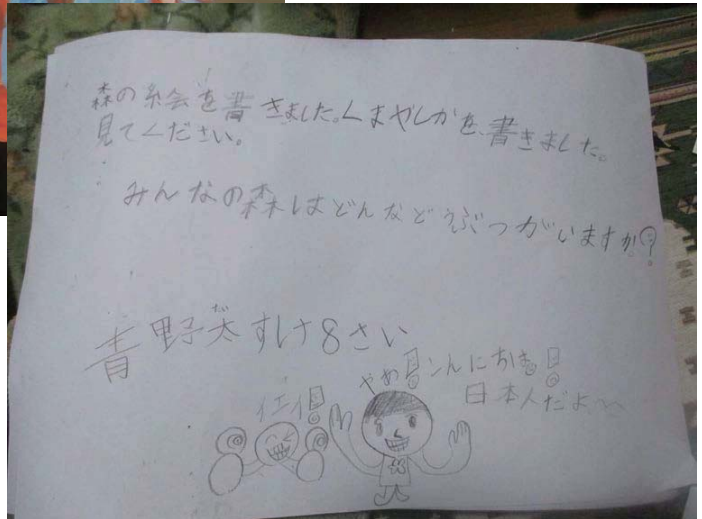 森の絵を書きました。くまやしかを書きました。
見てください。
みんなの森はどんなどうぶつがいますか?
青野太すけ8さい
た
イエイ!
やあ!こんにちは!
日本人だよ〜